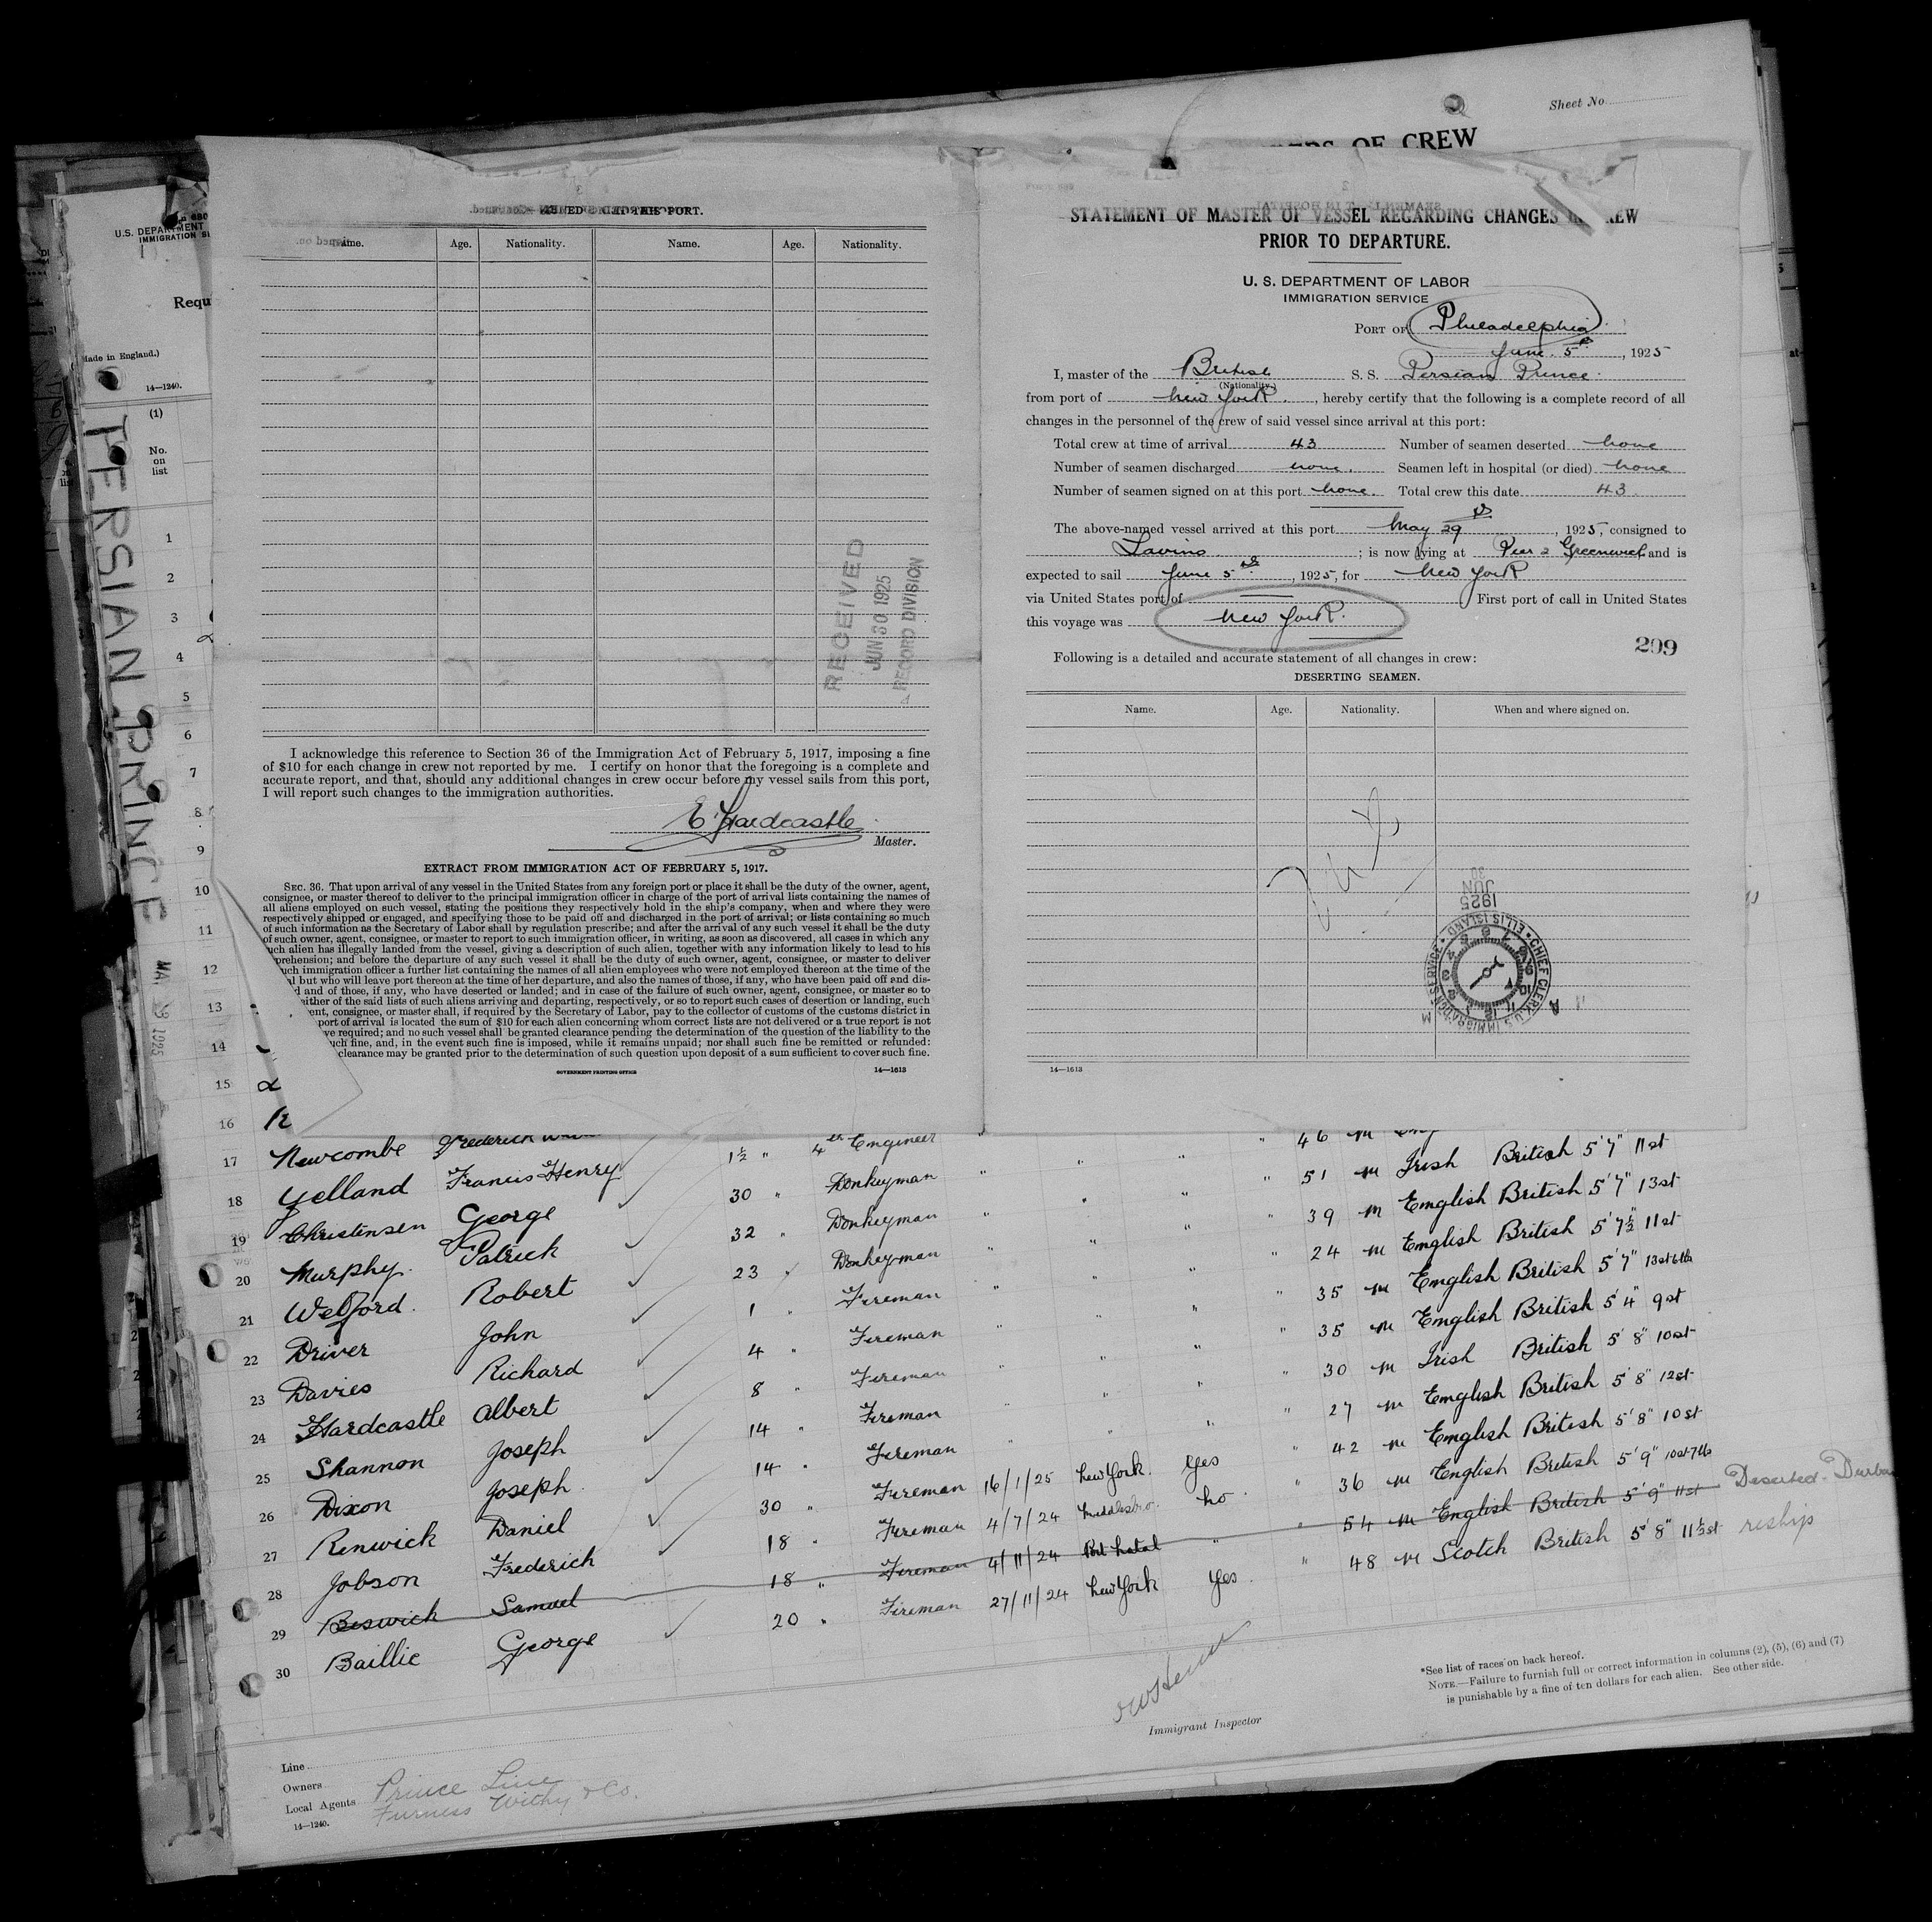 Sheet No.
OF CREW
U.S. DEPARTMENT
IMMIGRATION
Requ
Made in England.)
14—1240.
(1)
No.
on
list
PERSIAN PRINCE
1925
SIGNED ON AT THIS PORT.
Name. Age. Nationality. Name. Age. Nationality.
RECEIVED
JUN 30 1925
RECORD DIVISION
I acknowledge this reference to Section 36 of the Immigration Act of February 5, 1917, imposing a fine
of $10 for each change in crew not reported by me. I certify on honor that the foregoing is a complete and
accurate report, and that, should any additional changes in crew occur before my vessel sails from this port,
I will report such changes to the immigration authorities.
E. Hardcastle
Master.
EXTRACT FROM IMMIGRATION ACT OF FEBRUARY 5, 1917.
SEC. 36. That upon arrival of any vessel in the United States from any foreign port or place it shall be the duty of the owner, agent,
consignee, or master thereof to deliver to the principal immigration officer in charge of the port of arrival lists containing the names of
all aliens employed on such vessel, stating the positions they respectively hold in the ship's company, when and where they were
respectively shipped or engaged, and specifying those to be paid off and discharged in the port of arrival; or lists containing so much
of such information as the Secretary of Labor shall by regulation prescribe; and after the arrival of any such vessel it shall be the duty
of such owner, agent, consignee, or master to report to such immigration officer, in writing, as soon as discovered, all cases in which any
such alien has illegally landed from the vessel, giving a description of such alien, together with any information likely to lead to his
prehension; and before the departure of any such vessel it shall be the duty of such owner, agent, consignee, or master to deliver
uch immigration officer a further list containing the names of all alien employees who were not employed thereon at the time of the
al but who will leave port thereon at the time of her departure, and also the names of those, if any, who have been paid off and dis-
d and of those, if any, who have deserted or landed; and in case of the failure of such owner, agent, consignee, or master so to
either of the said lists of such aliens arriving and departing, respectively, or so to report such cases of desertion or landing, such
ent, consignee, or master shall, if required by the Secretary of Labor, pay to the collector of customs of the customs district in
port of arrival is located the sum of $10 for each alien concerning whom correct lists are not delivered or a true report is not
ve required; and no such vessel shall be granted clearance pending the determination of the question of the liability to the
uch fine, and, in the event such fine is imposed, while it remains unpaid; nor shall such fine be remitted or refunded:
clearance may be granted prior to the determination of such question upon deposit of a sum sufficient to cover such fine.
GOVERNMENT PRINTING OFFICE
14—1613
STATEMENT OF MASTER OF VESSEL REGARDING CHANGES IN CREW
PRIOR TO DEPARTURE.
U. S. DEPARTMENT OF LABOR
IMMIGRATION SERVICE
PORT OF Philadelphia
June 5th, 1925
I, master of the British S. S. Persian Prince
(Nationality.)
from port of New York, hereby certify that the following is a complete record of all
changes in the personnel of the crew of said vessel since arrival at this port:
Total crew at time of arrival 43 Number of seamen deserted None
Number of seamen discharged None. Seamen left in hospital (or died) None
Number of seamen signed on at this port None. Total crew this date 43
The above-named vessel arrived at this port May 29th, 1925, consigned to
Lavino; is now lying at Pier 2 Greenwich and is
expected to sail June 5th, 1925, for New York
via United States port of First port of call in United States
this voyage was New York.
209
Following is a detailed and accurate statement of all changes in crew:
DESERTING SEAMEN.
Name. Age. Nationality. When and where signed on.
1925
JUN
30
CHIEF CLERK, U.S. IMMIGRATION SERVICE • ELLIS ISLAND •
14—1613
1
2
3
4
5
6
7
8
9
10
11
12
13
14
15
16
17 Newcombe Frederick 1½ " 4th Engineer " " " " 46 M
18 Yelland Francis Henry 30 " Donkeyman " " " " 51 M Irish British 5'7" 11st
19 Christensen George 32 " Donkeyman " " " " 39 M English British 5'7" 13st
20 Murphy. Patrick 23 " Donkeyman " " " " 24 M English British 5'7½" 11st
21 Welford. Robert 1 " Fireman " " " " 35 M English British 5'7" 13st 6lb
22 Driver John 4 " Fireman " " " " 35 M English British 5'4" 9st
23 Davies Richard 8 " Fireman " " " " 30 M Irish British 5'8" 10st
24 Hardcastle Albert 14 " Fireman " " " " 27 M English British 5'8" 12st
25 Shannon Joseph 14 " Fireman " " " " 42 M English British 5'8" 10st
26 Dixon Joseph 30 " Fireman 16/1/25 New York. Yes " 36 M English British 5'9" 10st 7lb
27 Renwick Daniel 18 " Fireman 4/7/24 Middlesbro. No " 54 M English British 5'9" 11st Deserted - Durban
28 Jobson Frederich 18 " Fireman 4/11/24 Port Natal " " 48 M Scotch British 5'8" 11½st reship
29 Beswick Samuel 20 " Fireman 27/11/24 New York Yes
30 Baillie George
Immigrant Inspector
*See list of races on back hereof.
NOTE.—Failure to furnish full or correct information in columns (2), (5), (6) and (7)
is punishable by a fine of ten dollars for each alien. See other side.
Line
Owners Prince Line
Local Agents Furness Withy & Co.
14—1240.